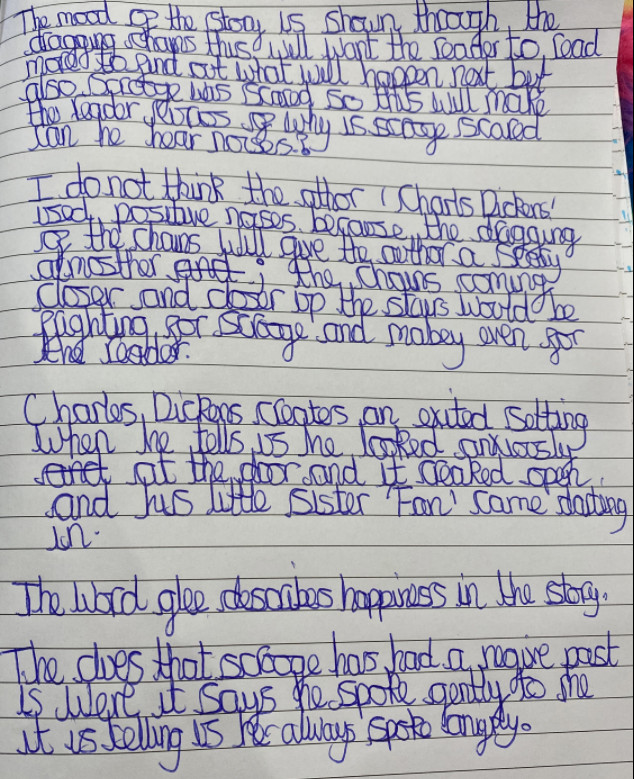 The mood of the story is shown through the
dragging chains this will want the reader to read
more to find out what will happen next but
also Scrooge was scared so this will make
the reader of why is scrooge scared
can he hear noises?
I do not think the athor 'Charls Dickens'
used positive noises because the dragging
of the chains will give the author a spooky
atmosther and; the chains coming
closer and closer up the stairs would be
frighting for scrooge and mabey even for
the reader.
Charles Dickens creates an exited setting
when he tells us he looked anxiously
and at the door and it creaked open
and his little sister 'Fan' came darting
in.
The word glee describes happiness in the story.
The clues that scrooge has had a negive past
is were it says he spoke gently to me
it is telling us he always spoke angrly.